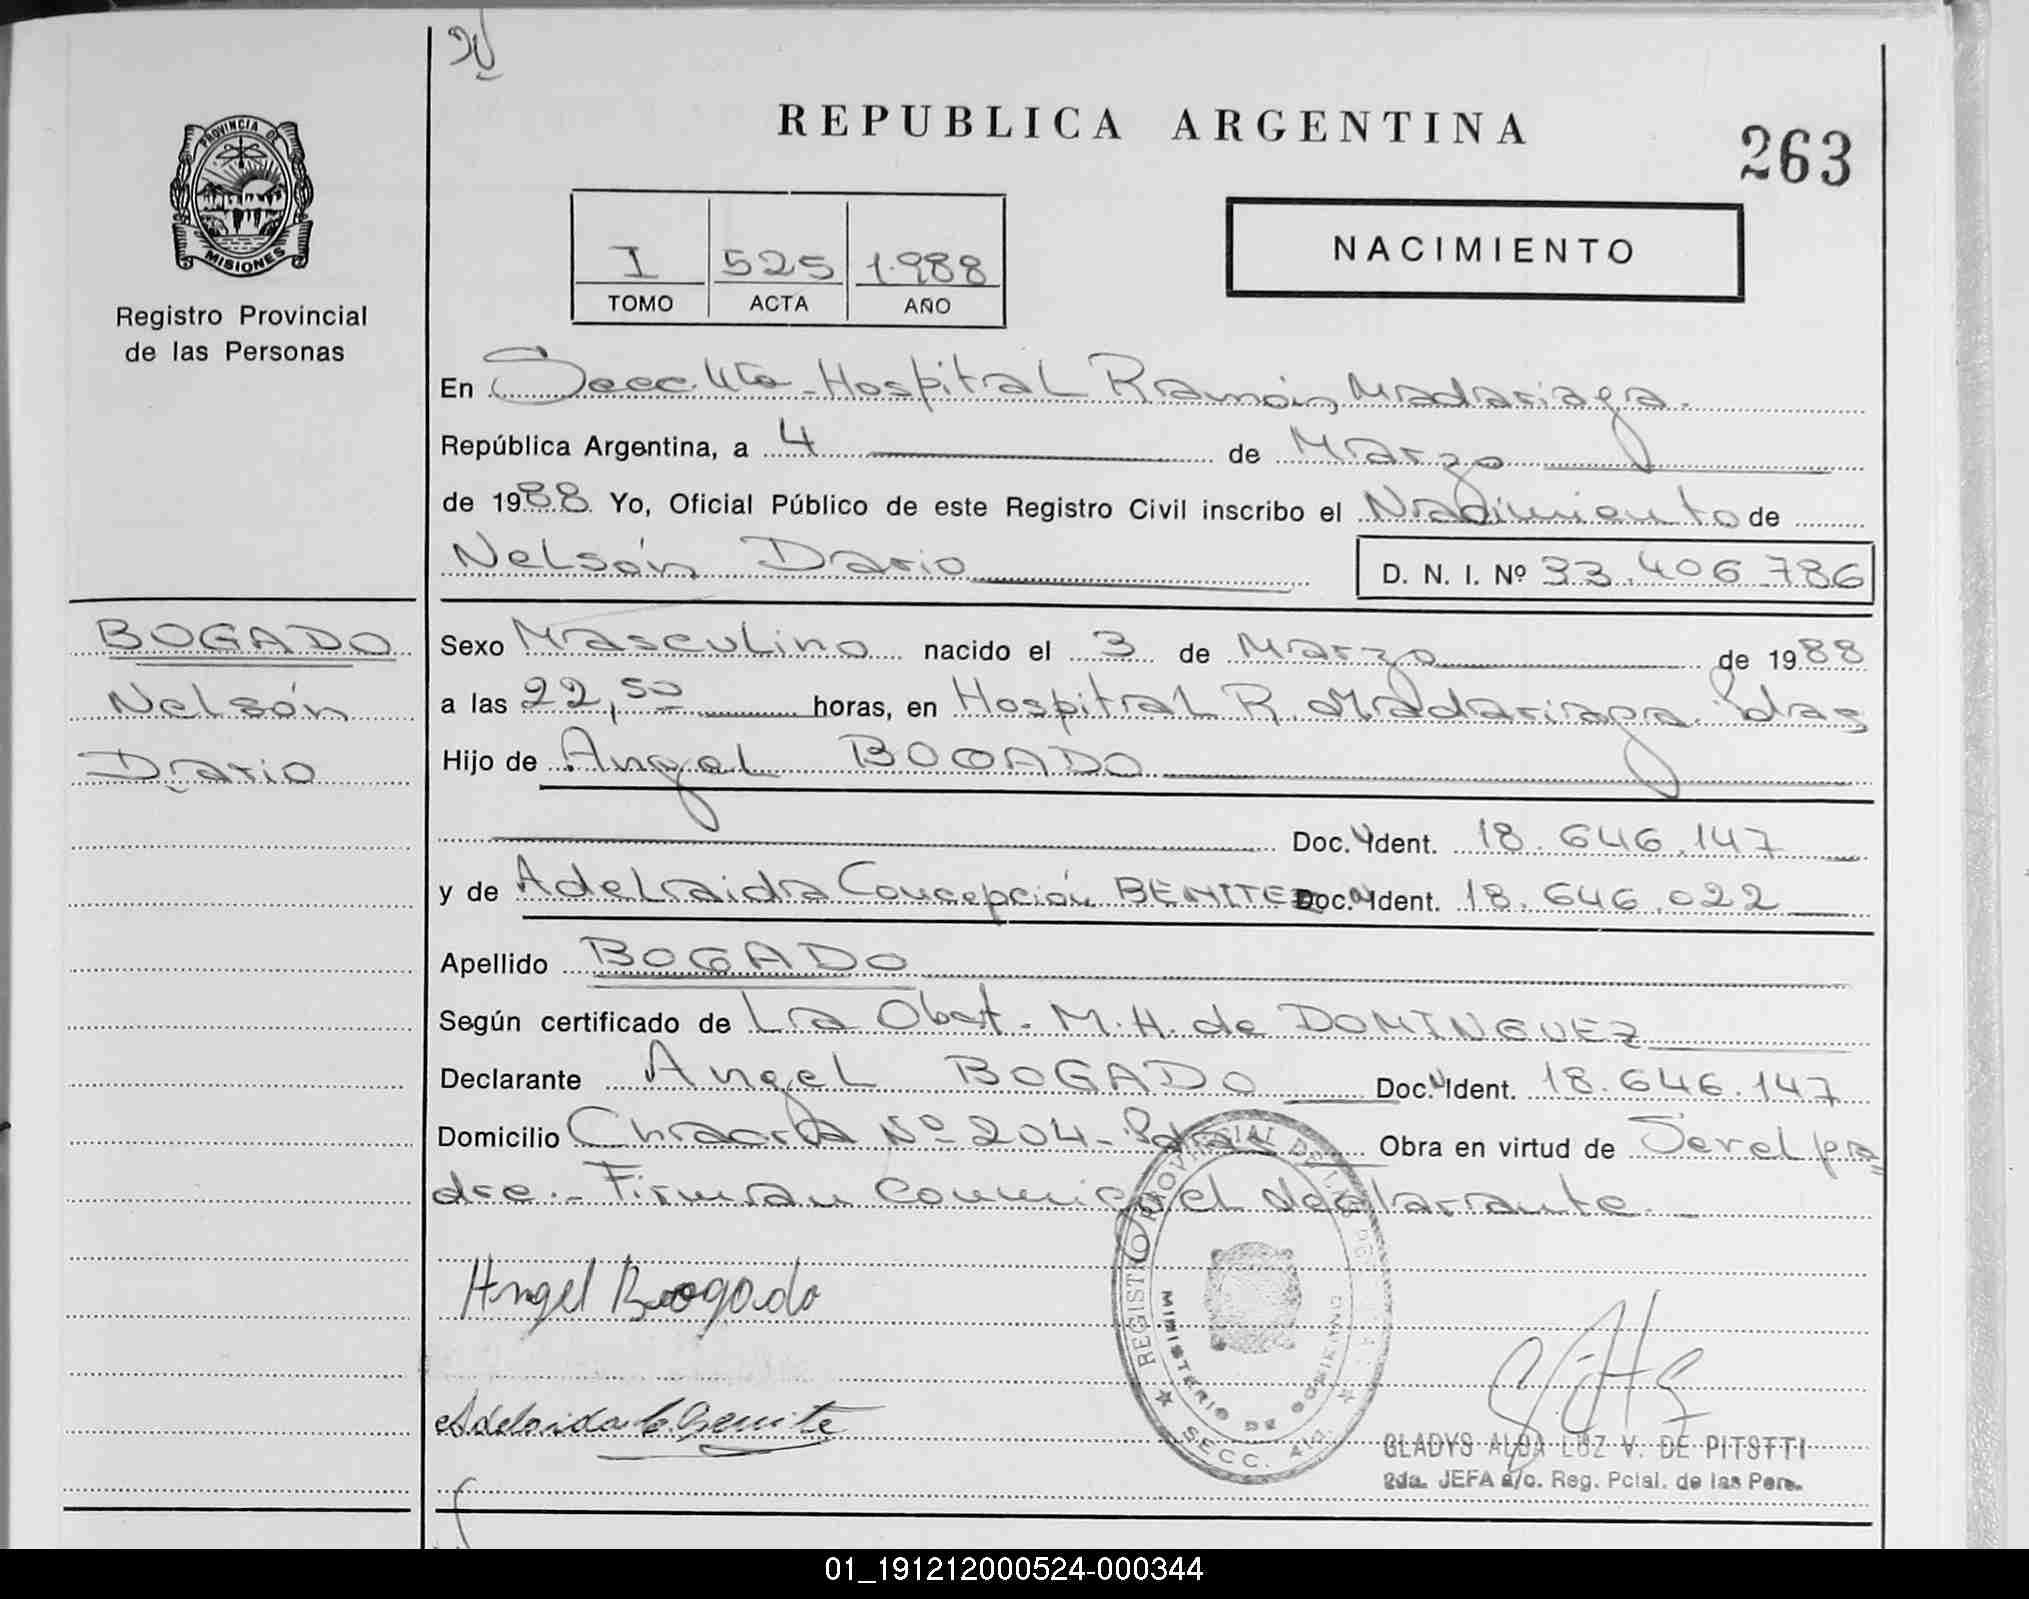 REPUBLICA ARGENTINA
263
PROVINCIA DE
MISIONES
Registro Provincial
de las Personas
I 525 1.988
TOMO ACTA AÑO
NACIMIENTO
En Secc. 4ta - Hospital Ramón Madariaga.
República Argentina, a 4 de Marzo
de 1988 Yo, Oficial Público de este Registro Civil inscribo el Nacimiento de
Nelsón Dario
D. N. I. Nº 33.406.786
BOGADO
Nelsón
Dario
Sexo Masculino nacido el 3 de Marzo de 1988
a las 22,50 horas, en Hospital R. Madariaga. Pdas
Hijo de Angel BOGADO
Doc. Ident. 18.646.147
y de Adelaida Concepción BENITEZ Doc. Ident. 18.646.022
Apellido BOGADO
Según certificado de La Obst. M.H. de DOMINGUEZ
Declarante Angel BOGADO Doc. Ident. 18.646.147
Domicilio Chacra Nº 204 - Pdas Obra en virtud de Ser el pa=
dre.- Firman conmigo el declarante.-
Angel Bogado
REGISTRO PROVINCIAL DE LAS
MINISTERIO DE GOBIERNO
SECC. 4ta.
Adelaida C. Benite
GLADYS ALBA LUZ V. DE
2da. JEFA a/c. Reg. Pcial. de las Pers.
01_191212000524-000344